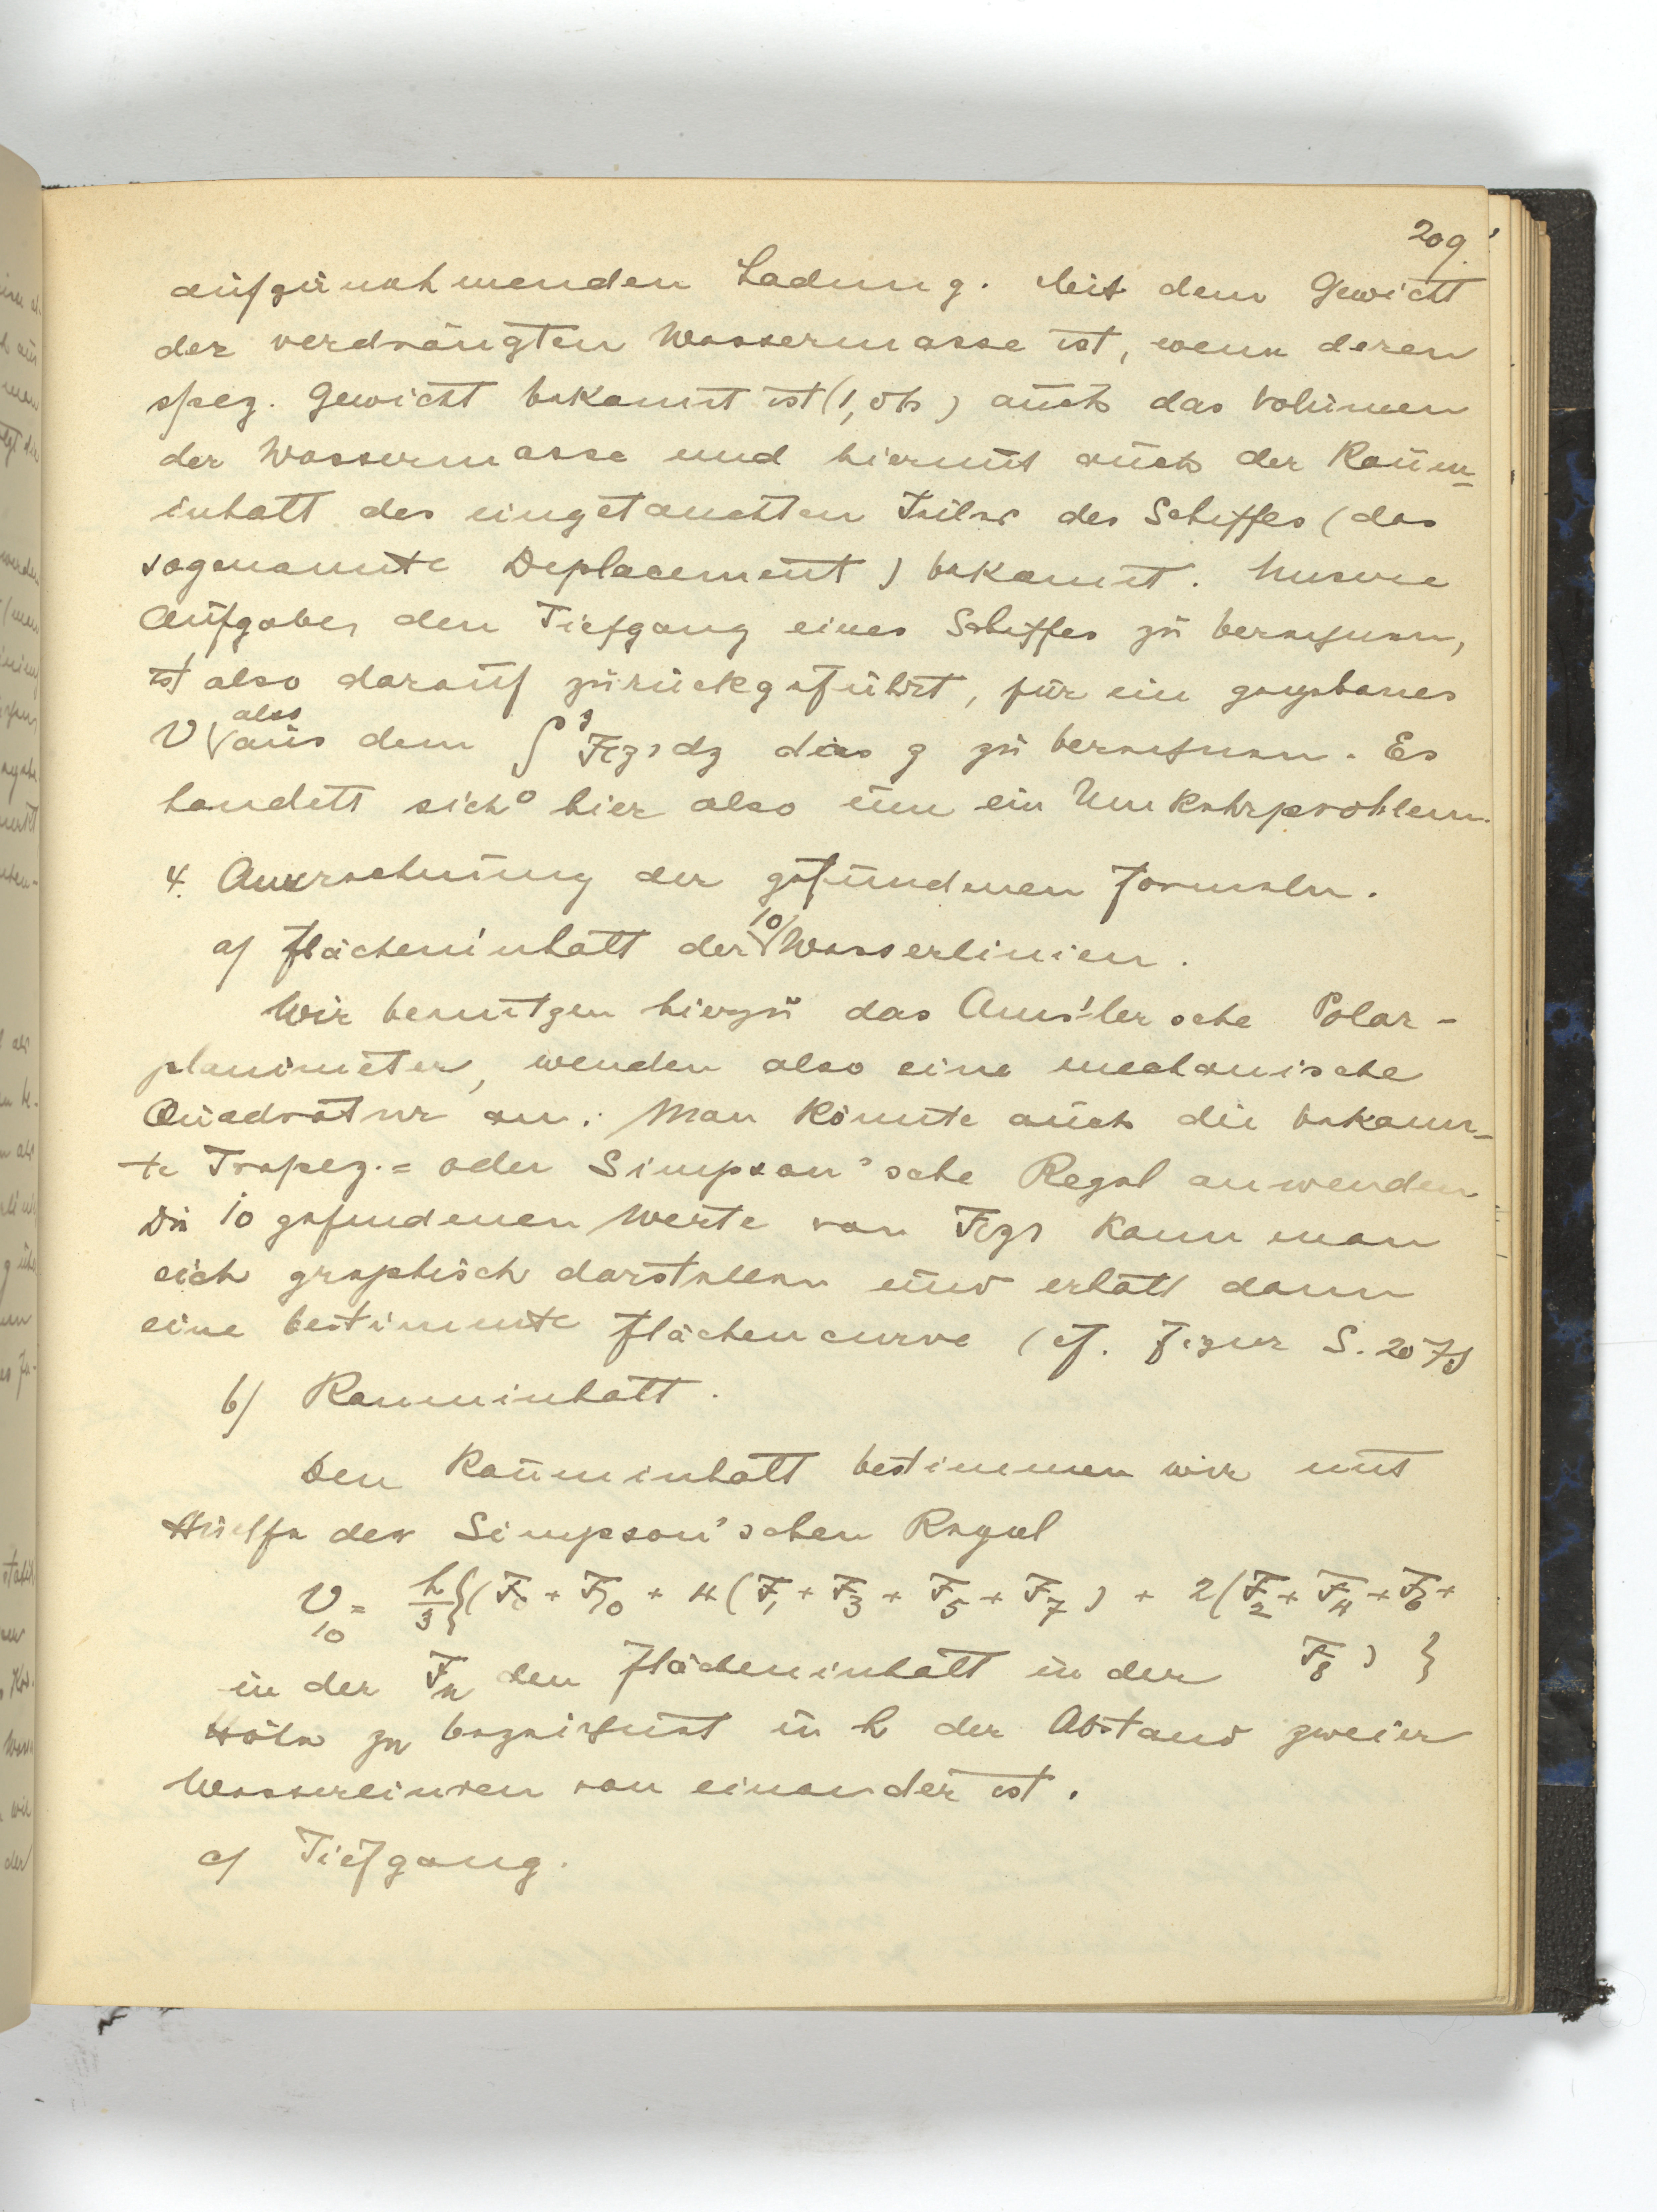 209.
aufzunehmenden Ladung. Mit dem Gewicht
der verdrängten Wassermasse ist, wenn deren
spez. Gewicht bekannt ist auch das Volumen
der Wassermasse und hiermit auch der Raum-
inhalt des eingetauchten Teiles des Schiffes (das
sogenannte Deplacement) bekannt. Unsere
Aufgabe, den Tiefgang eines Schiffes zu berechnen,
ist also darauf zurückgeführt, für ein gegebenes
V also aus dem ∫₀ᶻ F(z) dz das z zu berechnen. Es
handelt sich hier also um ein Umkehrproblem.
4. Ausrechnung der gefundenen Formeln.
a) Flächeninhalt der 10 Wasserlinien.
Wir benutzen hierzu das Amsler'sche Polar-
planimeter, wenden also eine mechanische
Quadratur an. Man könnte auch die bekann-
te Trapez- oder Simpson'sche Regel anwenden
Die 10 gefundenen Werte von F(z) kann man
sich graphisch darstellen und erhält dann
eine bestimmte Flächencurve (cf. Figur S. 207)
b) Rauminhalt.
Den Rauminhalt bestimmen wir mit
Hülfe der Simpson'schen Regel
V₁₀ = h/3 {(F₀ + F₁₀ + 4(F₁ + F₃ + F₅ + F₇) + 2(F₂ + F₄ + F₆ +
F₈)}
in der Fₙ den Flächeninhalt in der
Höhe zₙ bezeichnet u h der Abstand zweier
Wasserlinien von einander ist.
c) Tiefgang.